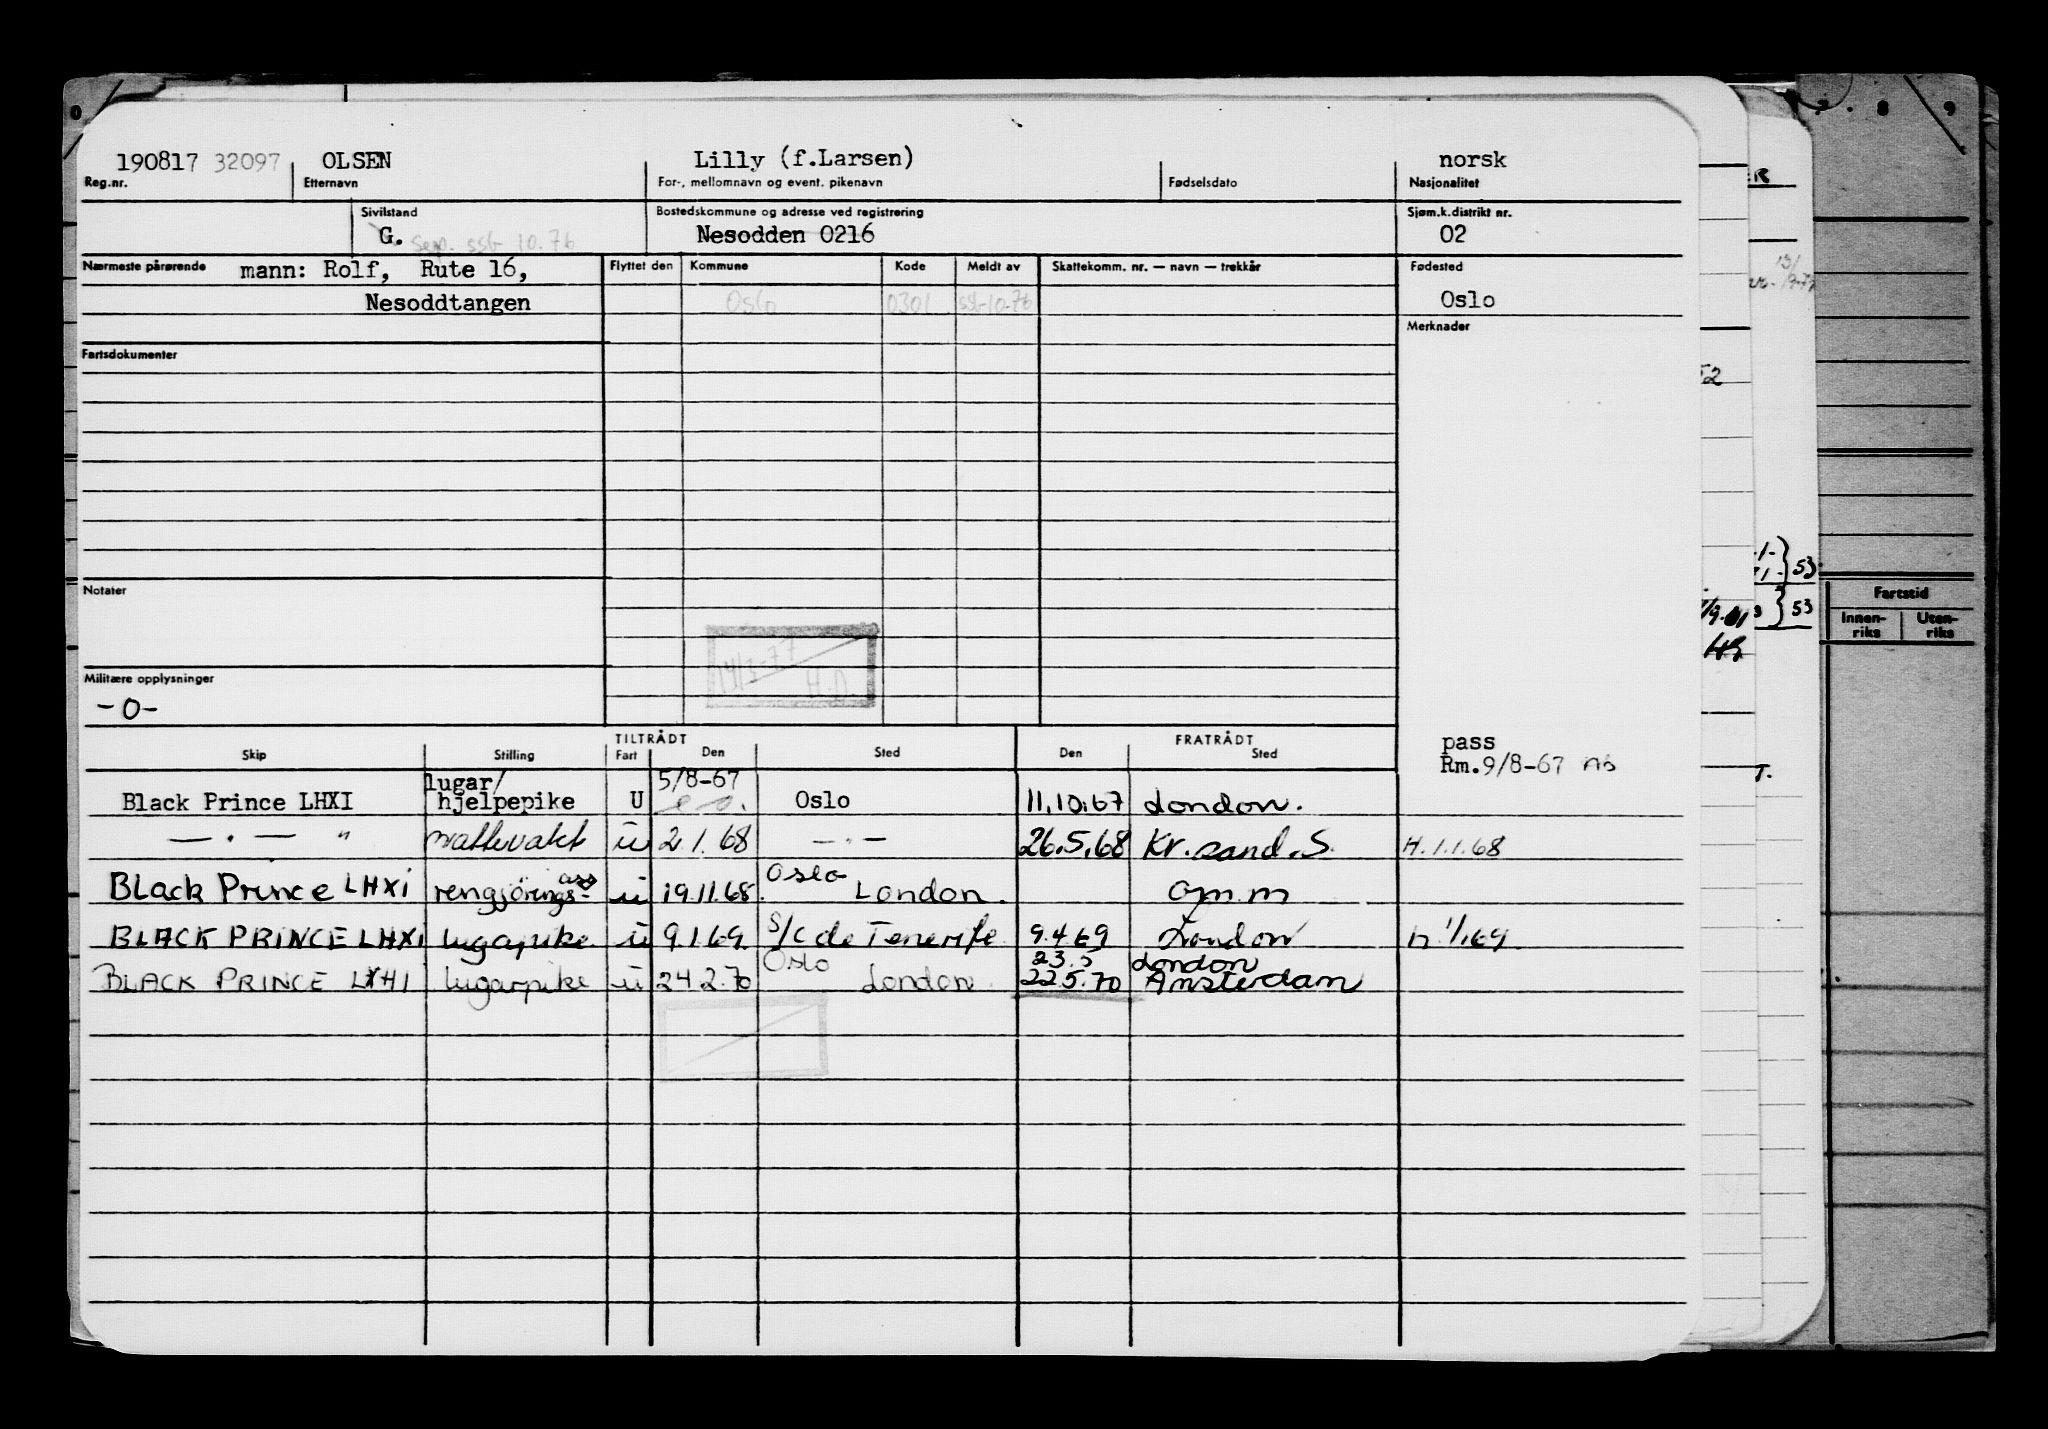 190817 32097 OLSEN Lilly (f.Larsen) norsk
Reg.nr. Etternavn For-, mellomnavn og event. pikenavn Fødselsdato Nasjonalitet
Sivilstand Bostedskommune og adresse ved registrering Sjøm.k.distrikt nr.
G. Sep. ssb 10.76 Nesodden 0216 02
Nærmeste pårørende mann: Rolf, Rute 16, Flyttet den Kommune Kode Meldt av Skattekomm. nr. — navn — trekkår Fødested
Nesoddtangen Oslo 0301 ssb 10-76 Oslo
Merknader
Fartsdokumenter
Notater
14/3-77 H.D.
Militære opplysninger
-0-
TILTRÅDT FRATRÅDT
Skip Stilling Fart Den Sted Den Sted
pass
Rm. 9/8-67
lugar/ 5/8-67
Black Prince LHXI hjelpepike U Oslo 11.10.67 London.
— . — " nattevakt u 2.1.68 — . — 26.5.68 Kr.sand.S. H.1.1.68
Black Prince LHXI rengjörings- ass u 19.11.68. Oslo London. om.m
BLACK PRINCE LHXI lugarpike u 9.1.69. S/C de Tenerife 9.4.69 London h 1/1.69
23.5 London
BLACK PRINCE LXHI lugarpike u 24.2.70 Oslo London. 22.5.70 Amsterdam
8 9
53
53
Fartstid
Innen-riks Uten-riks